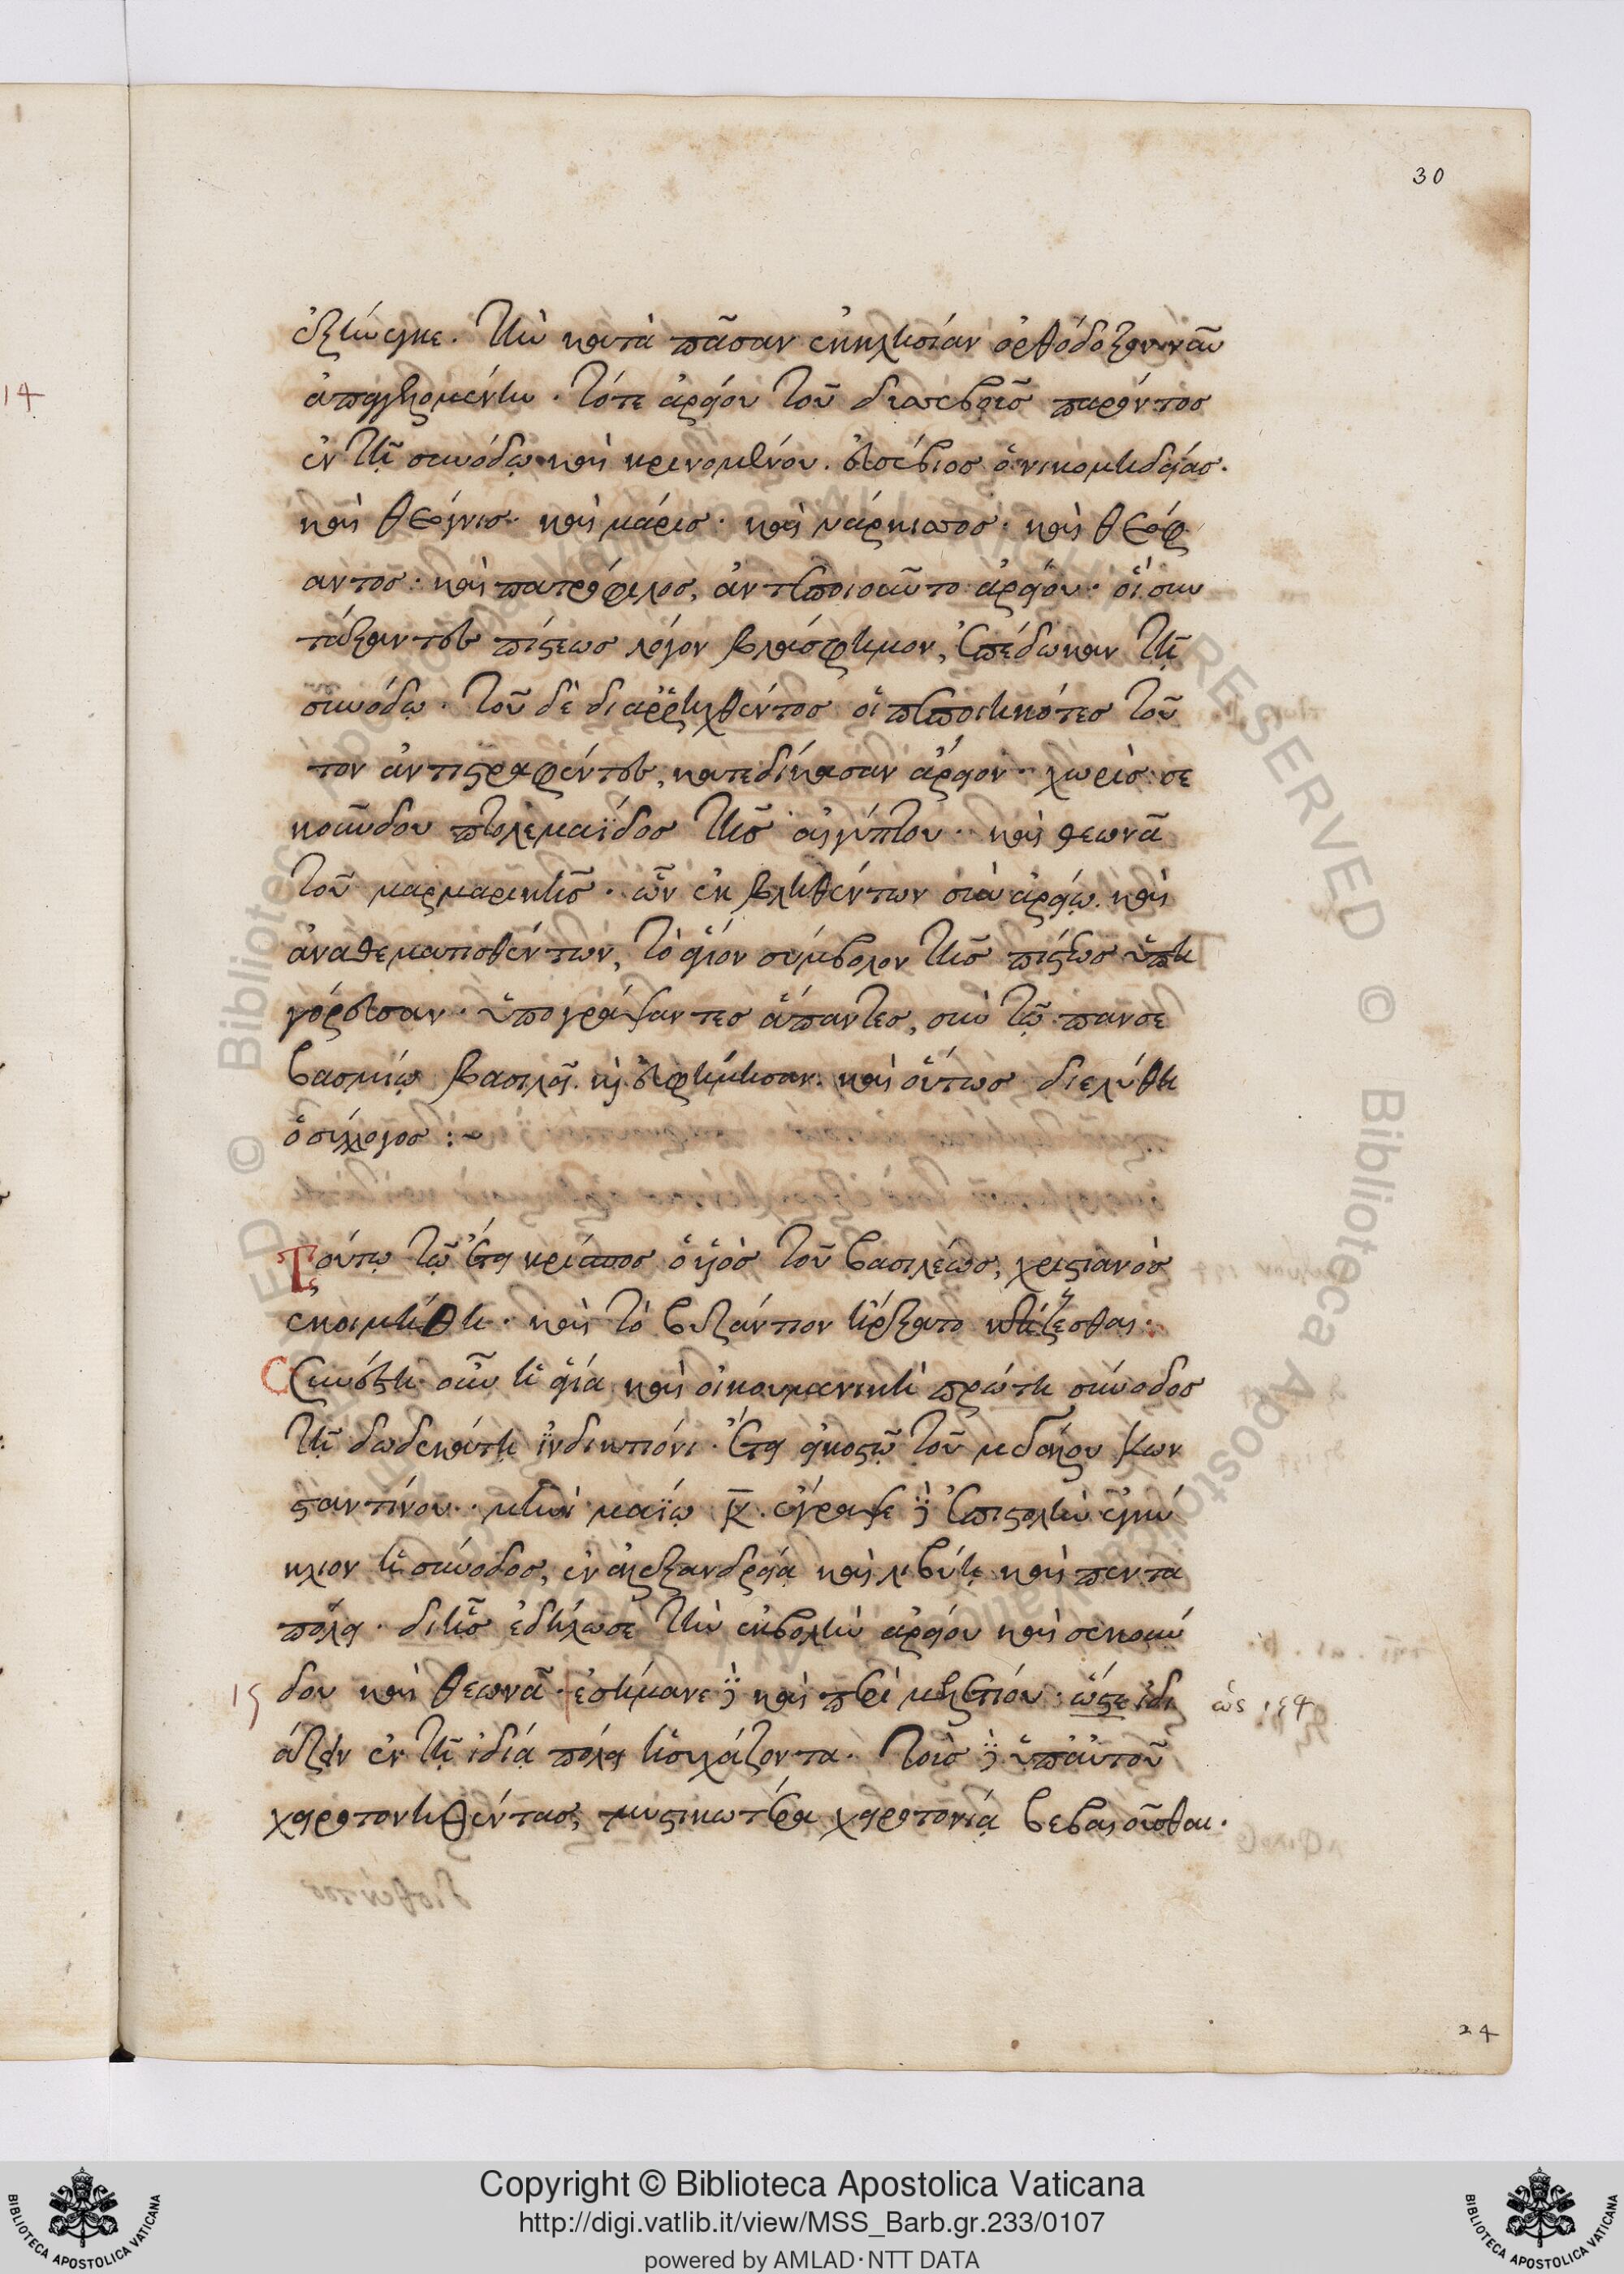 30
ἐξήνεγκε. τὴν κατὰ πᾶσαν ἐκκλησίαν ὀρθόδοξον νῦν
ἀπαγγελομένην. τότε ἀρείου τοῦ δυσεβοῦς παρόντος
ἐν τῇ συνόδῳ καὶ κρινομένου. εὐσέβιος ὁ νικομηδείας.
καὶ θέογνις. καὶ μάρις. καὶ νάρκισσος. καὶ θεόφ
αντος. καὶ πατρόφιλος, ἀντεποιοῦντο ἀρείου. οἳ συν
τάξαντες πίστεως λόγον βλάσφημον, ἐπέδωκαν τῇ
συνόδῳ. τοῦ δὲ διαρρηχθέντος οἱ πεποιηκότες τοῦ
τον ἀντιστραφέντες, κατεδίκασαν ἄρειον. χωρὶς σε
κούνδου πτολεμαΐδος τῆς αἰγύπτου. καὶ θεωνᾶ
τοῦ μαρμαρικῆς. ὧν ἐκβληθέντων σὺν ἀρείῳ. καὶ
ἀναθεματισθέντων, τὸ θεῖον σύμβολον τῆς πίστεως ὑπη
γόρευσαν. ὑπογράψαντες ἅπαντες, σὺν τῷ πανσε
βασμίῳ βασιλεῖ. καὶ εὐφήμησαν. καὶ οὕτως διελύθη
ὁ σύλλογος :~
Τούτῳ τῷ ἔτει κρίσπος ὁ υἱὸς τοῦ βασιλέως, χριστιανὸς
ἐκοιμήθη. καὶ τὸ βυζάντιον ἤρξατο κτίζεσθαι.
Συνέστη οὖν ἡ ἁγία καὶ οἰκουμενικὴ πρώτη σύνοδος
τῇ δωδεκάτῃ ἰνδικτιόνι. ἔτει εἰκοστῷ τοῦ μεγάλου Κων
σταντίνου. μηνὶ μαΐῳ κ̅. ἔγραψε δὲ ἐπιστολὴν ἐγκύ
κλιον ἡ σύνοδος, ἐν ἀλεξανδρείᾳ καὶ λιβύῃ καὶ πεντα
πόλει. δι ἧς ἐδήλωσε τὴν ἐκβολὴν ἀρείου καὶ σεκούν
15 δου καὶ θεωνᾶ. ἐσήμανε δὲ καὶ περὶ μελετίου. ὥστε ἰδι
άζειν ἐν τῇ ἰδίᾳ πόλει ἡσυχάζοντα. τοὺς δὲ ὑπ αὐτοῦ
χειροτονηθέντας, μυστικωτέρᾳ χειροτονίᾳ βεβαιοῦσθαι.
24
14
Copyright © Biblioteca Apostolica Vaticana
http://digi.vatlib.it/view/MSS_Barb.gr.233/0107
powered by AMLAD·NTT DATA
BIBLIOTECA APOSTOLICA VATICANA
BIBLIOTECA APOSTOLICA VATICANA